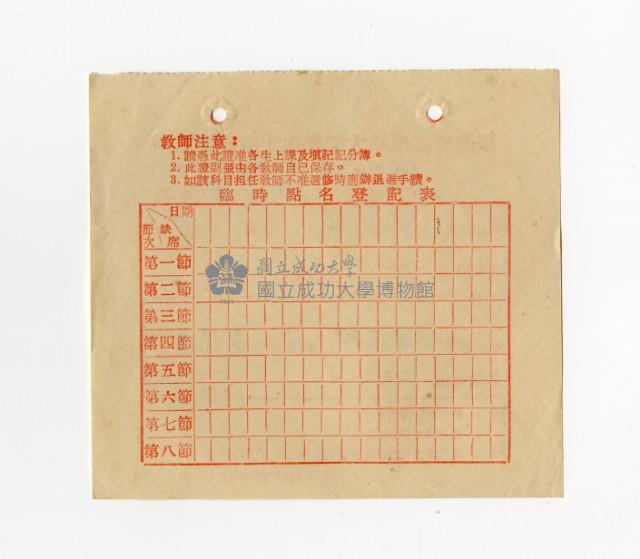 教師注意：
1. 請憑此證准各生上課及填記記分簿。
2. 此證副張由各教師自己保存。
3. 如該科目担任教師不准選修時應辦退選手續。
臨時點名登記表
日期
缺席
節次
第一節
第二節
第三節
第四節
第五節
第六節
第七節
第八節
國立成功大學
國立成功大學博物館